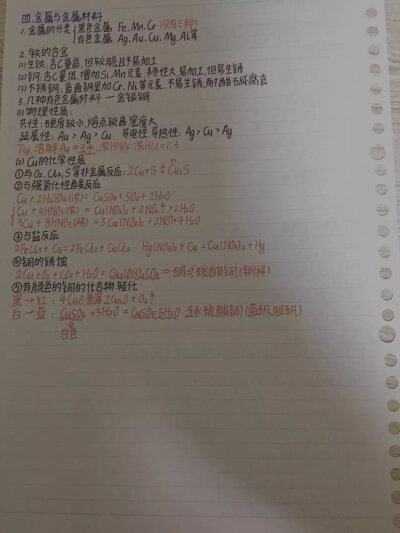 四.金属与金属材料
1.金属的分类 黑色金属 Fe、Mn、Cr (只有三种)
有色金属 Ag、Au、Cu、Mg、Al等
2.铁的合金
(1)生铁:含C量高,但较脆且不易加工
(2)钢:含C量低,增加Si、Mn元素,韧性大,易加工,但易生锈
(3)不锈钢:普通钢里加Cr、Ni等元素,不易生锈,耐酸
3.几种有色金属材料—金银铜
(1)物理性质:
共性:硬度较小,熔点较高,密度大
延展性:Au>Ag>Cu 导电性、导热性:Ag>Cu>Ag
Tip.溶解Au⇒王水,浓HNO3:浓HCl=1:3
(2)Cu的化学性质
①与O2、Cl2、S等非金属反应:2Cu+S=Cu2S
②与强氧化性酸反应
Cu+2H2SO4(浓)=CuSO4+SO2+2H2O
Cu+4HNO3(浓)=Cu(NO3)2+2NO2↑+2H2O
3Cu+8HNO3(稀)=3Cu(NO3)2+2NO↑+4H2O
③与盐反应
2FeCl3+Cu=2FeCl2+CuCl2 Hg(NO3)2+Cu=Cu(NO3)2+Hg
④铜的锈蚀
2Cu+O2+CO2+H2O=Cu2(OH)2CO3⇒碱式碳酸铜(铜绿)
⑤有颜色的铜的化合物转化
黑→红:4CuO 高温 2Cu2O+O2↑
白→蓝:CuSO4+5H2O=CuSO4·5H2O 五水硫酸铜(蓝矾、胆矾)
白色